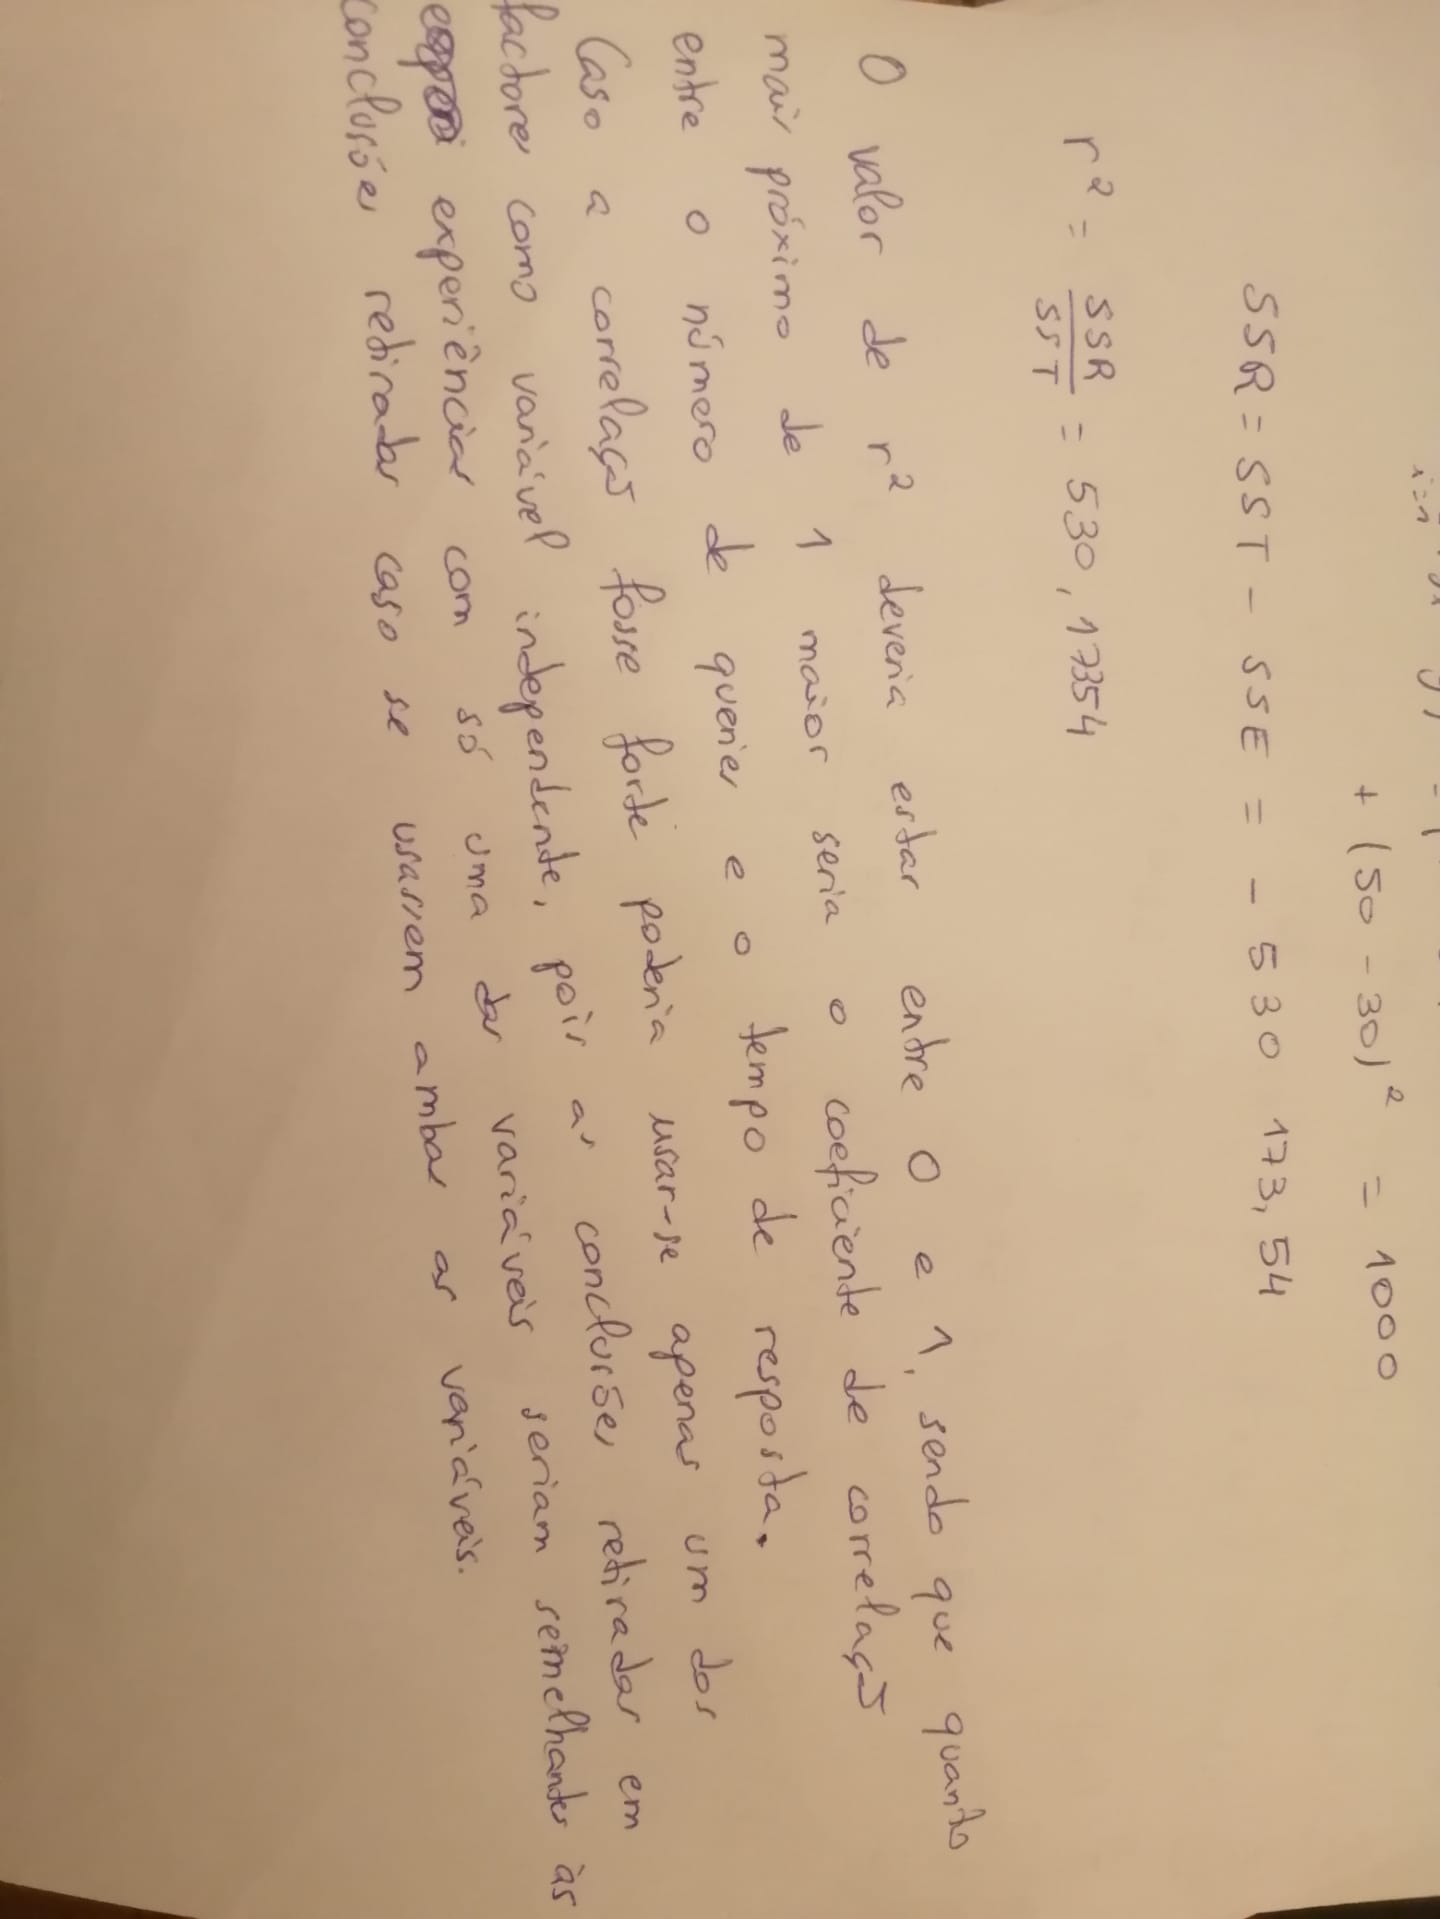 i=1
+ (50 - 30)² = 1000
SSR = SST - SSE = - 530 173,54
r² = SSR/SST = 530,17354
O valor de r² deveria estar entre 0 e 1, sendo que quanto
mais próximo de 1 maior seria o coeficiente de correlação
entre o número de queries e o tempo de resposta.
Caso a correlação fosse forte poderia usar-se apenas um dos
factores como variável independente, pois as conclusões retiradas em
experiências com só uma das variáveis seriam semelhantes às
conclusões retiradas caso se usassem ambas as variáveis.